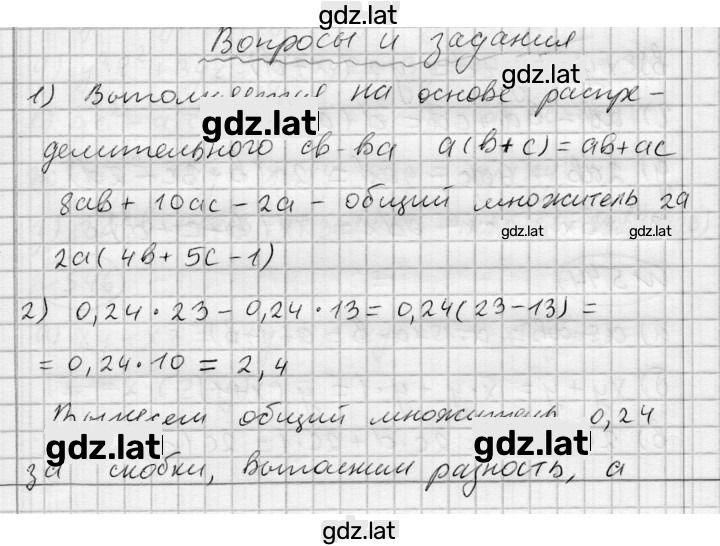 gdz.lat
Вопросы и задания
gdz.lat
1) Выполняется на основе распре-
gdz.lat
делительного св-ва a(b+c)=ab+ac
8ab+10ac-2a - общий множитель 2a
gdz.lat gdz.lat
2a(4b+5c-1)
2) 0,24·23-0,24·13=0,24(23-13)=
=0,24·10=2,4
Вынесем общий множитель 0,24
gdz.lat gdz.lat
за скобки, выполним разность, а
gdz.lat